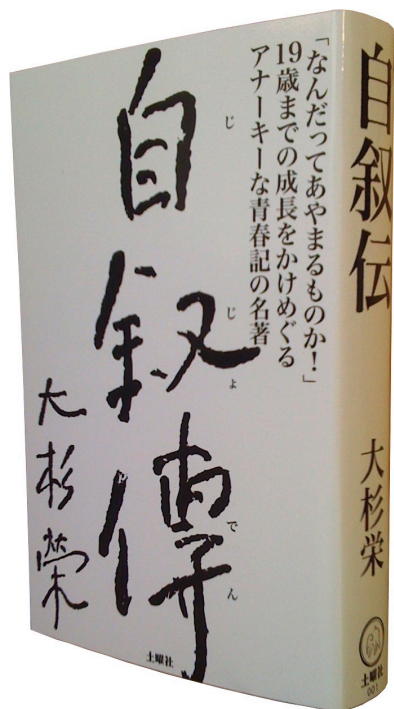 「なんだってあやまるものか!」
19歳までの成長をかけめぐる
アナーキーな青春記の名著
自叙傳
じじょでん
大杉榮
土曜社
自叙伝
大杉栄
土曜社
001